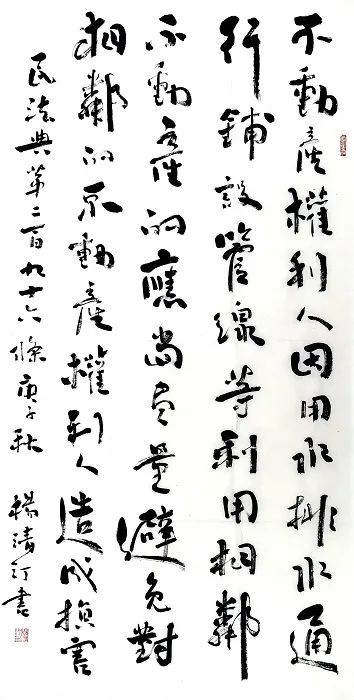 不動產權利人因用水排水通
行鋪設管線等利用相鄰
不動產的應當尽量避免對
相鄰的不動產權利人造成損害
民法典第二百九十六條庚子秋楊清汀書